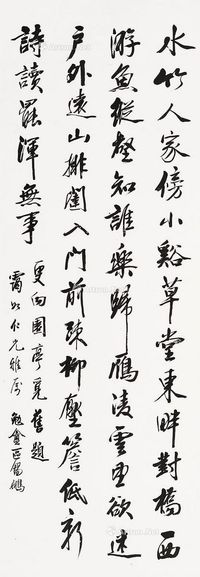 水竹人家傍小谿草堂東畔對橋西
游魚縱壑知誰樂歸雁凌雲望欲迷
戶外遠山排闥入門前疎柳壓簷低新
詩讀罷渾無事
更向園亭覓舊題
霱如仁兄雅屬